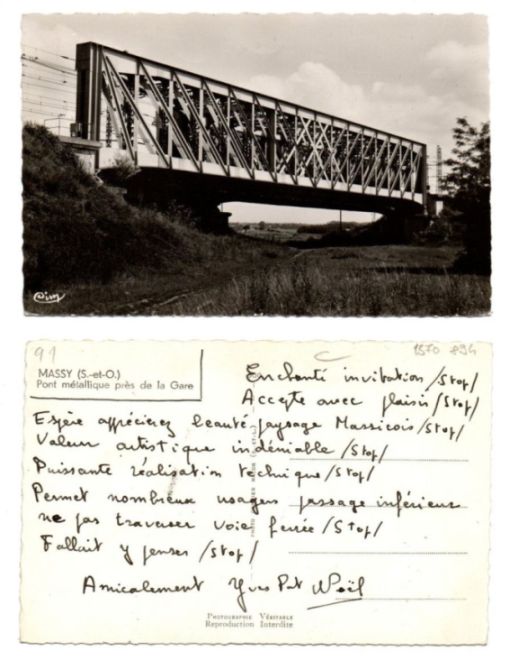 Cim
91
1570 894
MASSY (S.-et-O.)
Pont métallique près de la Gare
Enchanté invitation /Stop/
Accepte avec plaisir /Stop/
Espère apprécierez beauté paysage Massicois /Stop/
Valeur artistique indéniable /Stop/
Puissante réalisation technique /Stop/
Permet nombreux usagers passage inférieur
ne pas traverser voie ferrée /Stop/
Fallait y penser /Stop/
Amicalement Yves Pat Noël
PHOTOGRAPHIE VÉRITABLE
Reproduction Interdite